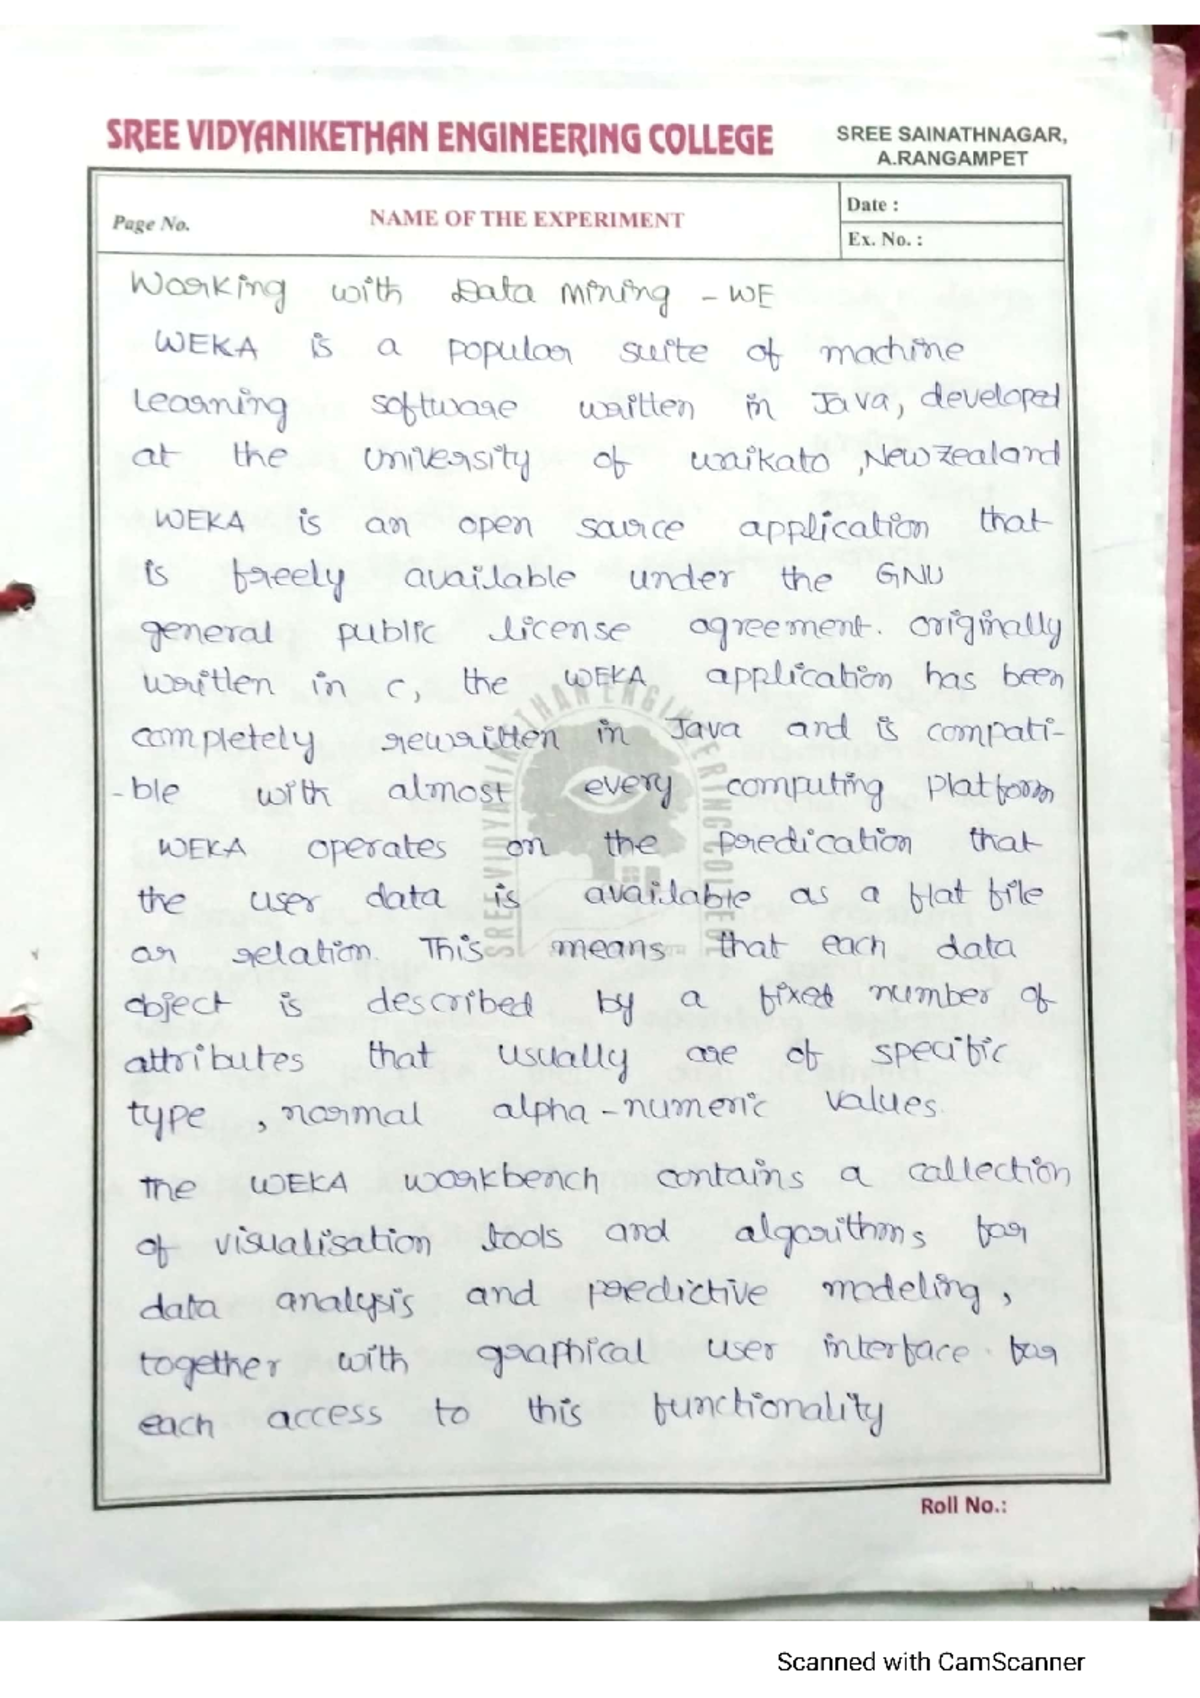 SREE VIDYANIKETHAN ENGINEERING COLLEGE
SREE SAINATHNAGAR,
A.RANGAMPET
Page No.
NAME OF THE EXPERIMENT
Date :
Ex. No. :
Working with Data Mining - WE
WEKA is a popular suite of machine
learning software written in Java, developed
at the university of waikato ,Newzealand
WEKA is an open saurce application that
is freely available under the GNU
general public license agreement. originally
written in c, the WEKA application has been
completely rewritten in Java and is compati-
-ble with almost every computing platform
WEKA operates on the predication that
the user data is available as a flat file
or relation. This means that each data
object is described by a fixed number of
attributes that usually are of specific
type , normal alpha-numeric values.
The WEKA workbench contains a collection
of visualisation tools and algorithms for
data analysis and predictive modeling ,
together with graphical user interface for
each access to this functionality
SREE VIDYANIKETHAN ENGINEERING COLLEGE
Roll No.:
Scanned with CamScanner